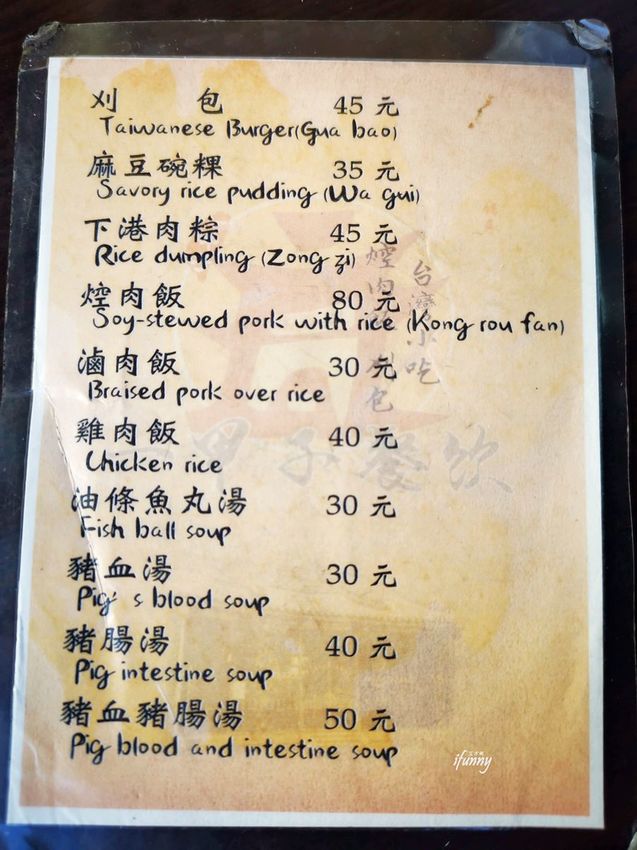 刈 包 45 元
Taiwanese Burger(Gua bao)
麻豆碗粿 35 元
Savory rice pudding (Wa gui)
下港肉粽 45 元
Rice dumpling (Zong zi)
焢肉飯 80 元
Soy-stewed pork with rice (Kong rou fan)
滷肉飯 30 元
Braised pork over rice
雞肉飯 40 元
Chicken rice
油條魚丸湯 30 元
Fish ball soup
豬血湯 30 元
Pig's blood soup
豬腸湯 40 元
Pig intestine soup
豬血豬腸湯 50 元
Pig blood and intestine soup
台灣小吃
甲子餐飲
ifunny